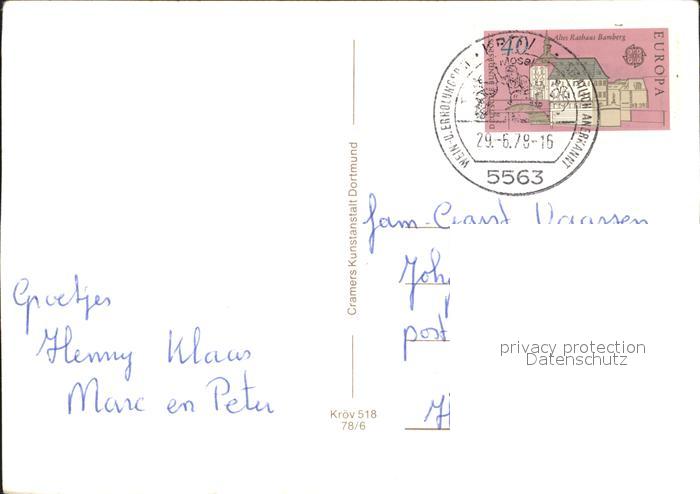 40
Altes Rathaus Bamberg
EUROPA
KRÖV
Mosel
WEIN-U.ERHOLUNGSORT
STAATLICH ANERKANNT
29.-6.78-16
5563
Cramers Kunstanstalt Dortmund
Fam.
Joh
post
Groetjes
Henny Klaas
Marc en Peter
privacy protection
Datenschutz
Kröv 518
78/6